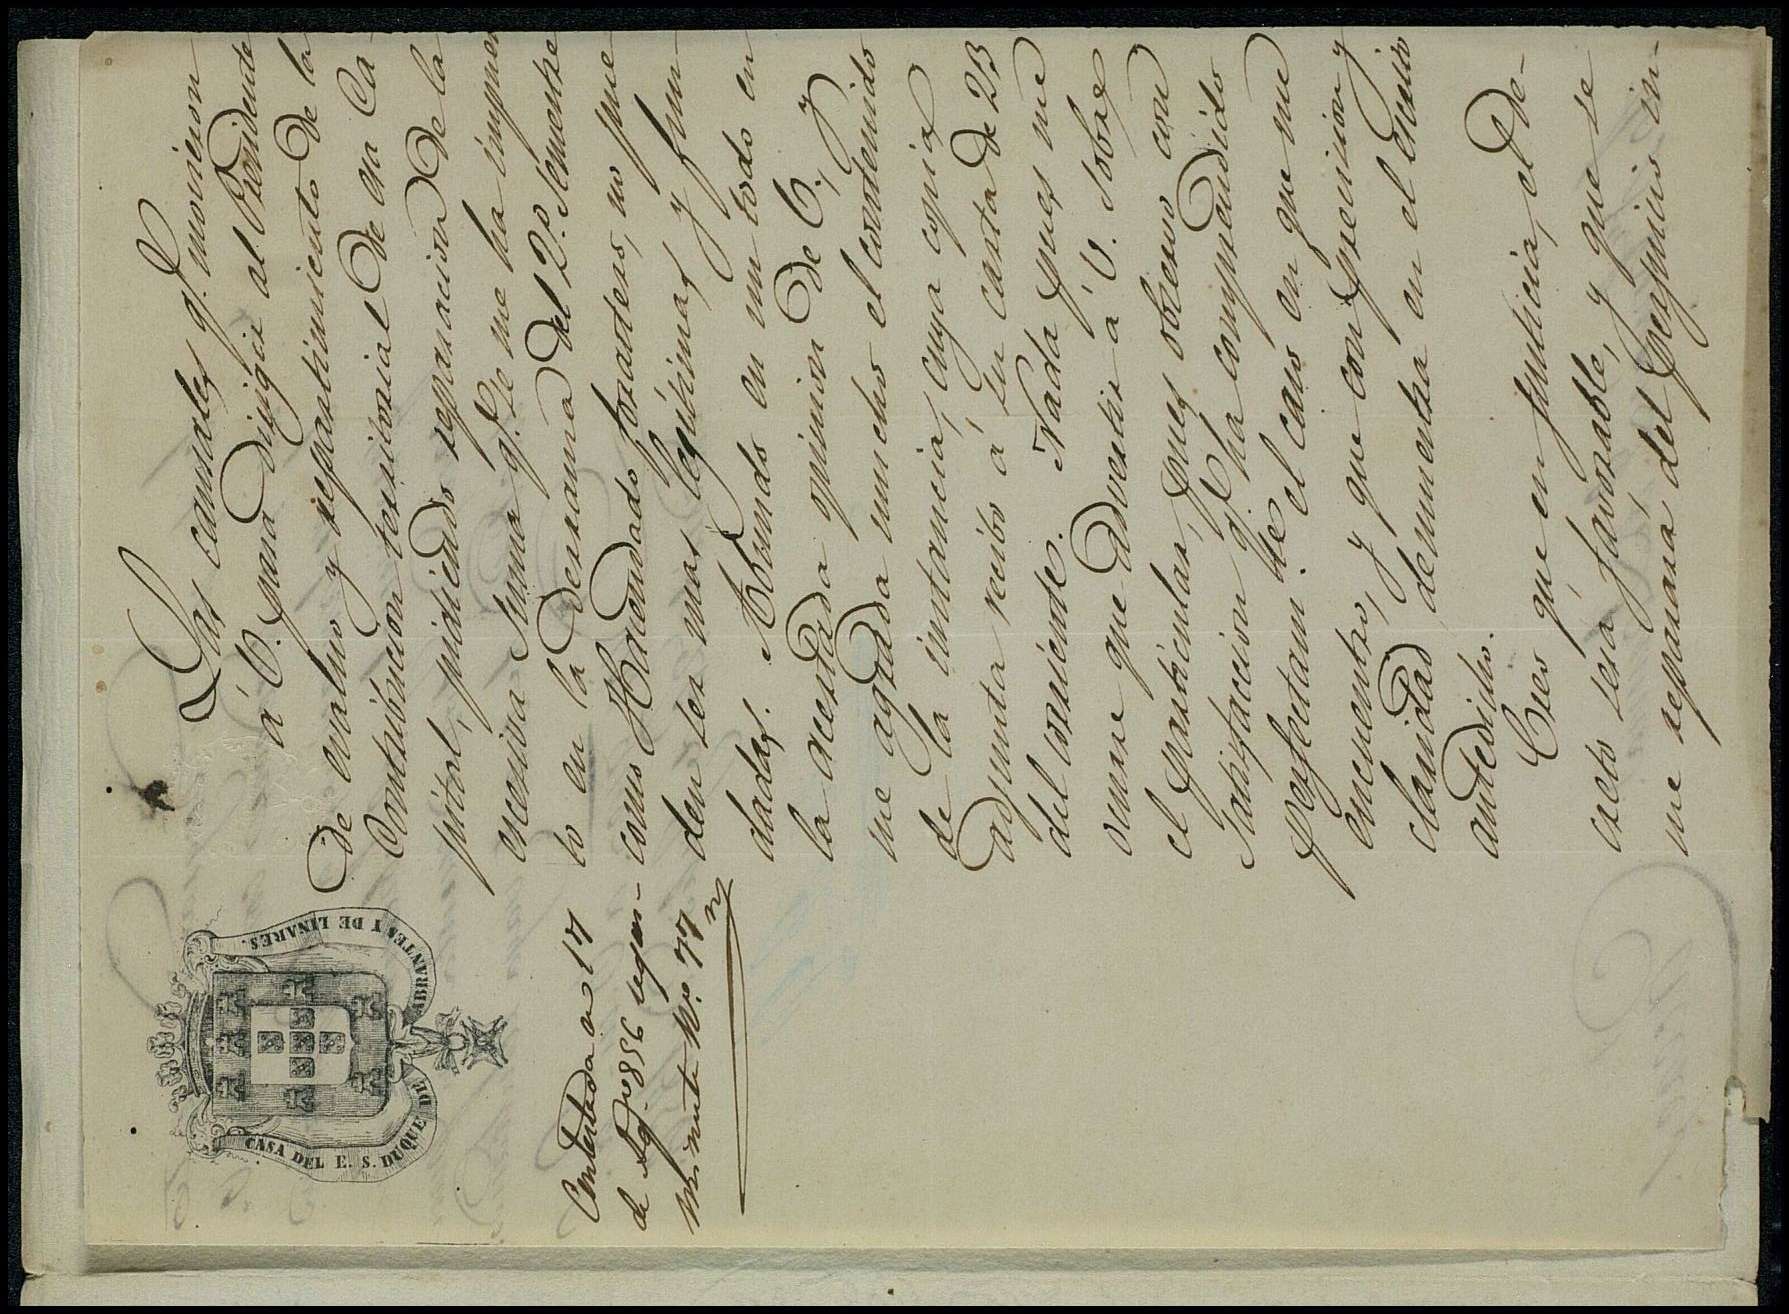 CASA DEL E. S. DUQUE DE ABRANTES Y DE LINARES.
Contestada en 17
de Agto. 856 segun
minuta No. 77
Las causales q.e movieron
á V. para dirigir al Presidente
de avaluo y repartimiento de la
Contribucion territorial de esa Ca-
pital, pidiendo reparacion de la
excesiva suma q.e se me ha impues
to en la derrama del 2.o Semestre
como Hacendado forastero, no pue
den ser mas legítimas y fun
dadas. Abundo en un todo en
la acertada opinion de V., y
me agrada mucho el contenido
de la instancia, cuya copia
adjunta recibo á su carta de 23
del corriente. Nada pues me
ocurre que advertir á V. sobre
el particular, pues observo con
satisfaccion q.e ha comprendido
perfectam.te el caso en que me
encuentro, y que con precision y
claridad demuestra en el escrito
antedicho.
Creo que en justicia, el de-
creto será favorable, y que se
me reparará del perjuicio in-